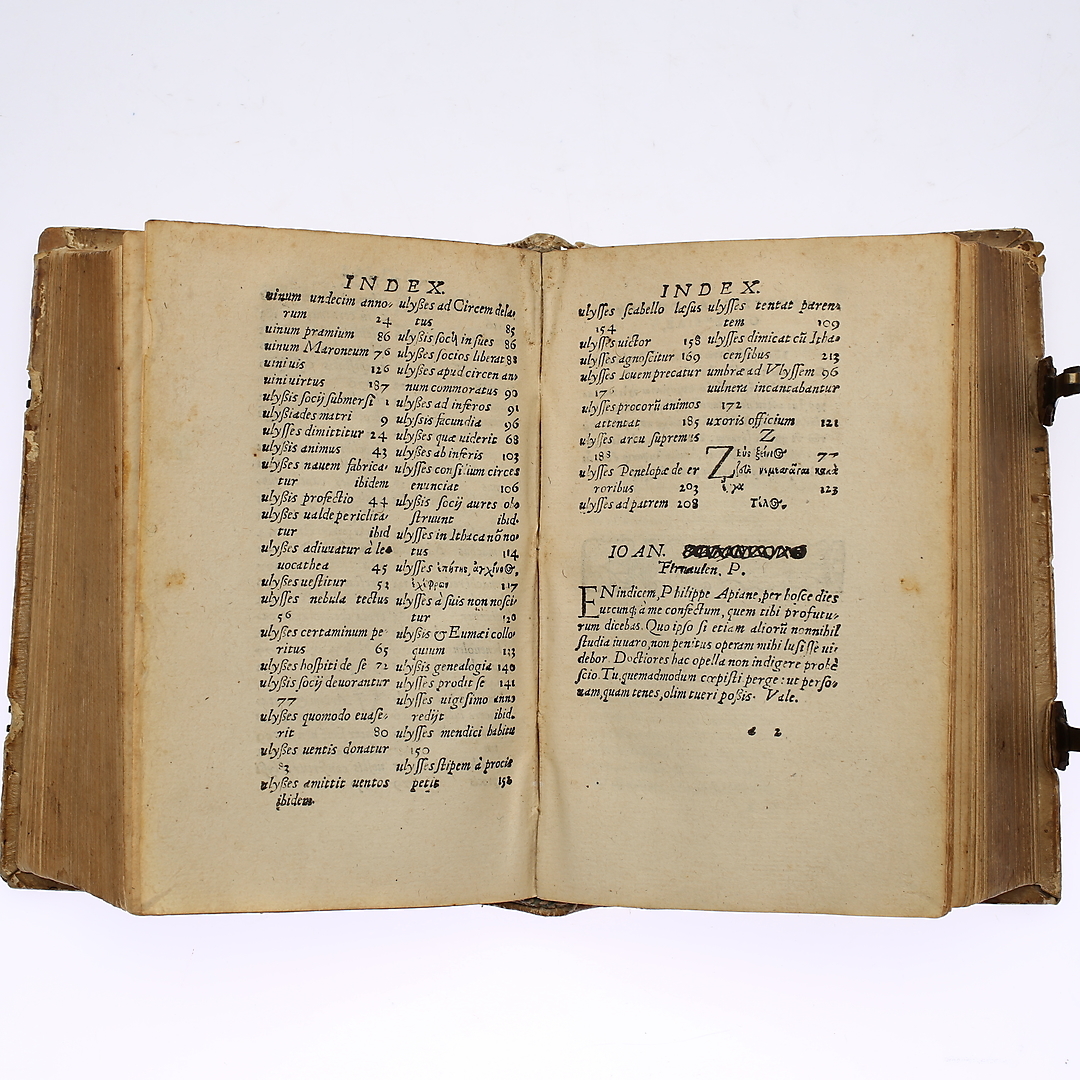 INDEX.
uinum undecim anno-
rum 24
uinum pramium 86
uinum Maroneum 76
uini uis 126
uini uirtus 187
ulyßis socij submersi 1
ulyßiades matri 9
ulysses dimittitur 24
ulyßis animus 43
ulyßes nauem fabrica-
tur ibidem
ulyßis profectio 44
ulyßes ualde periclita-
tur ibid
ulyßes adiuuatur à leu
uocathea 45
ulyßes uestitur 52
ulyßes nebula tectus
56
ulyßes certaminum pe
ritus 65
ulyßes hospiti de se 72
ulyßis socij deuorantur
77
ulyßes quomodo euase-
rit 80
ulyßes uentis donatur
83
ulyßes amittit uentos
ibidem.
ulyßes ad Circem dela-
tus 85
ulyßis socij in sues 86
ulyßes socios liberat 88
ulyßes apud circen an-
num commoratus 90
ulyßes ad inferos 91
ulyssis facundia 96
ulyßes quæ uiderit 68
ulyßes ab inferis 103
ulysses consilium circes
enunciat 106
ulyßis socij aures ob-
struunt ibid.
ulysses in Ithaca nõ no-
tus 114
ulysses ἐπητὴς, ἀγχίνοος,
ἐχέφρων 117
ulysses à suis non nosci-
tur 120
ulyßis & Eumæi collo
quium 133
ulyßis genealogia 140
ulysses prodit se 141
ulysses uigesimo anno
redijt ibid.
ulysses mendici habitu
150
ulysses stipem à procis
petit 152
INDEX.
ulysses scabello læsus
154
ulysses uictor 158
ulysses agnoscitur 169
ulysses Iouem precatur
17
ulysses procorũ animos
attentat 185
ulysses arcu supremus
188
ulysses Penelopæ de er
roribus 203
ulysses ad patrem 208
ulysses tentat paren-
tem 209
ulysses dimicat cũ Itha-
censibus 213
umbræ ad Vlyssem 96
uulnera incantabantur
172
uxoris officium 121
Z
Ζεὺς ξείνιος 77
123
Τέλος.
IOAN.
P.
EN indicem, Philippe Apiane, per hosce dies
utcunq; à me confectum, quem tibi profutu-
rum dicebas. Quo ipso si etiam aliorũ nonnihil
studia iuuaro, non penitus operam mihi lusisse ui-
debor. Doctiores hac opella non indigere probè
scio. Tu, quemadmodum cœpisti perge: ut perso-
nam, quam tenes, olim tueri poßis. Vale.
2